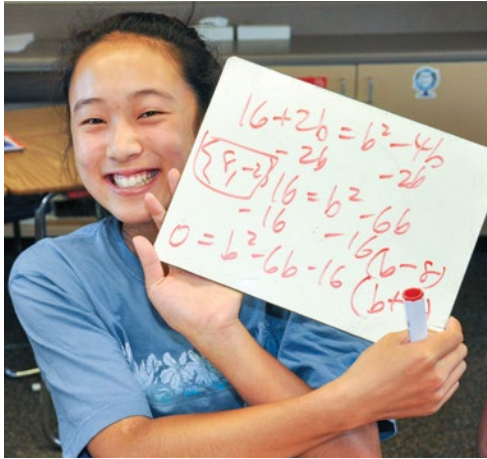 16+2b = b²-4b
-2b -2b
{8,-2} 16 = b² -6b
-16 -16
0 = b²-6b-16 (b-8)
(b+